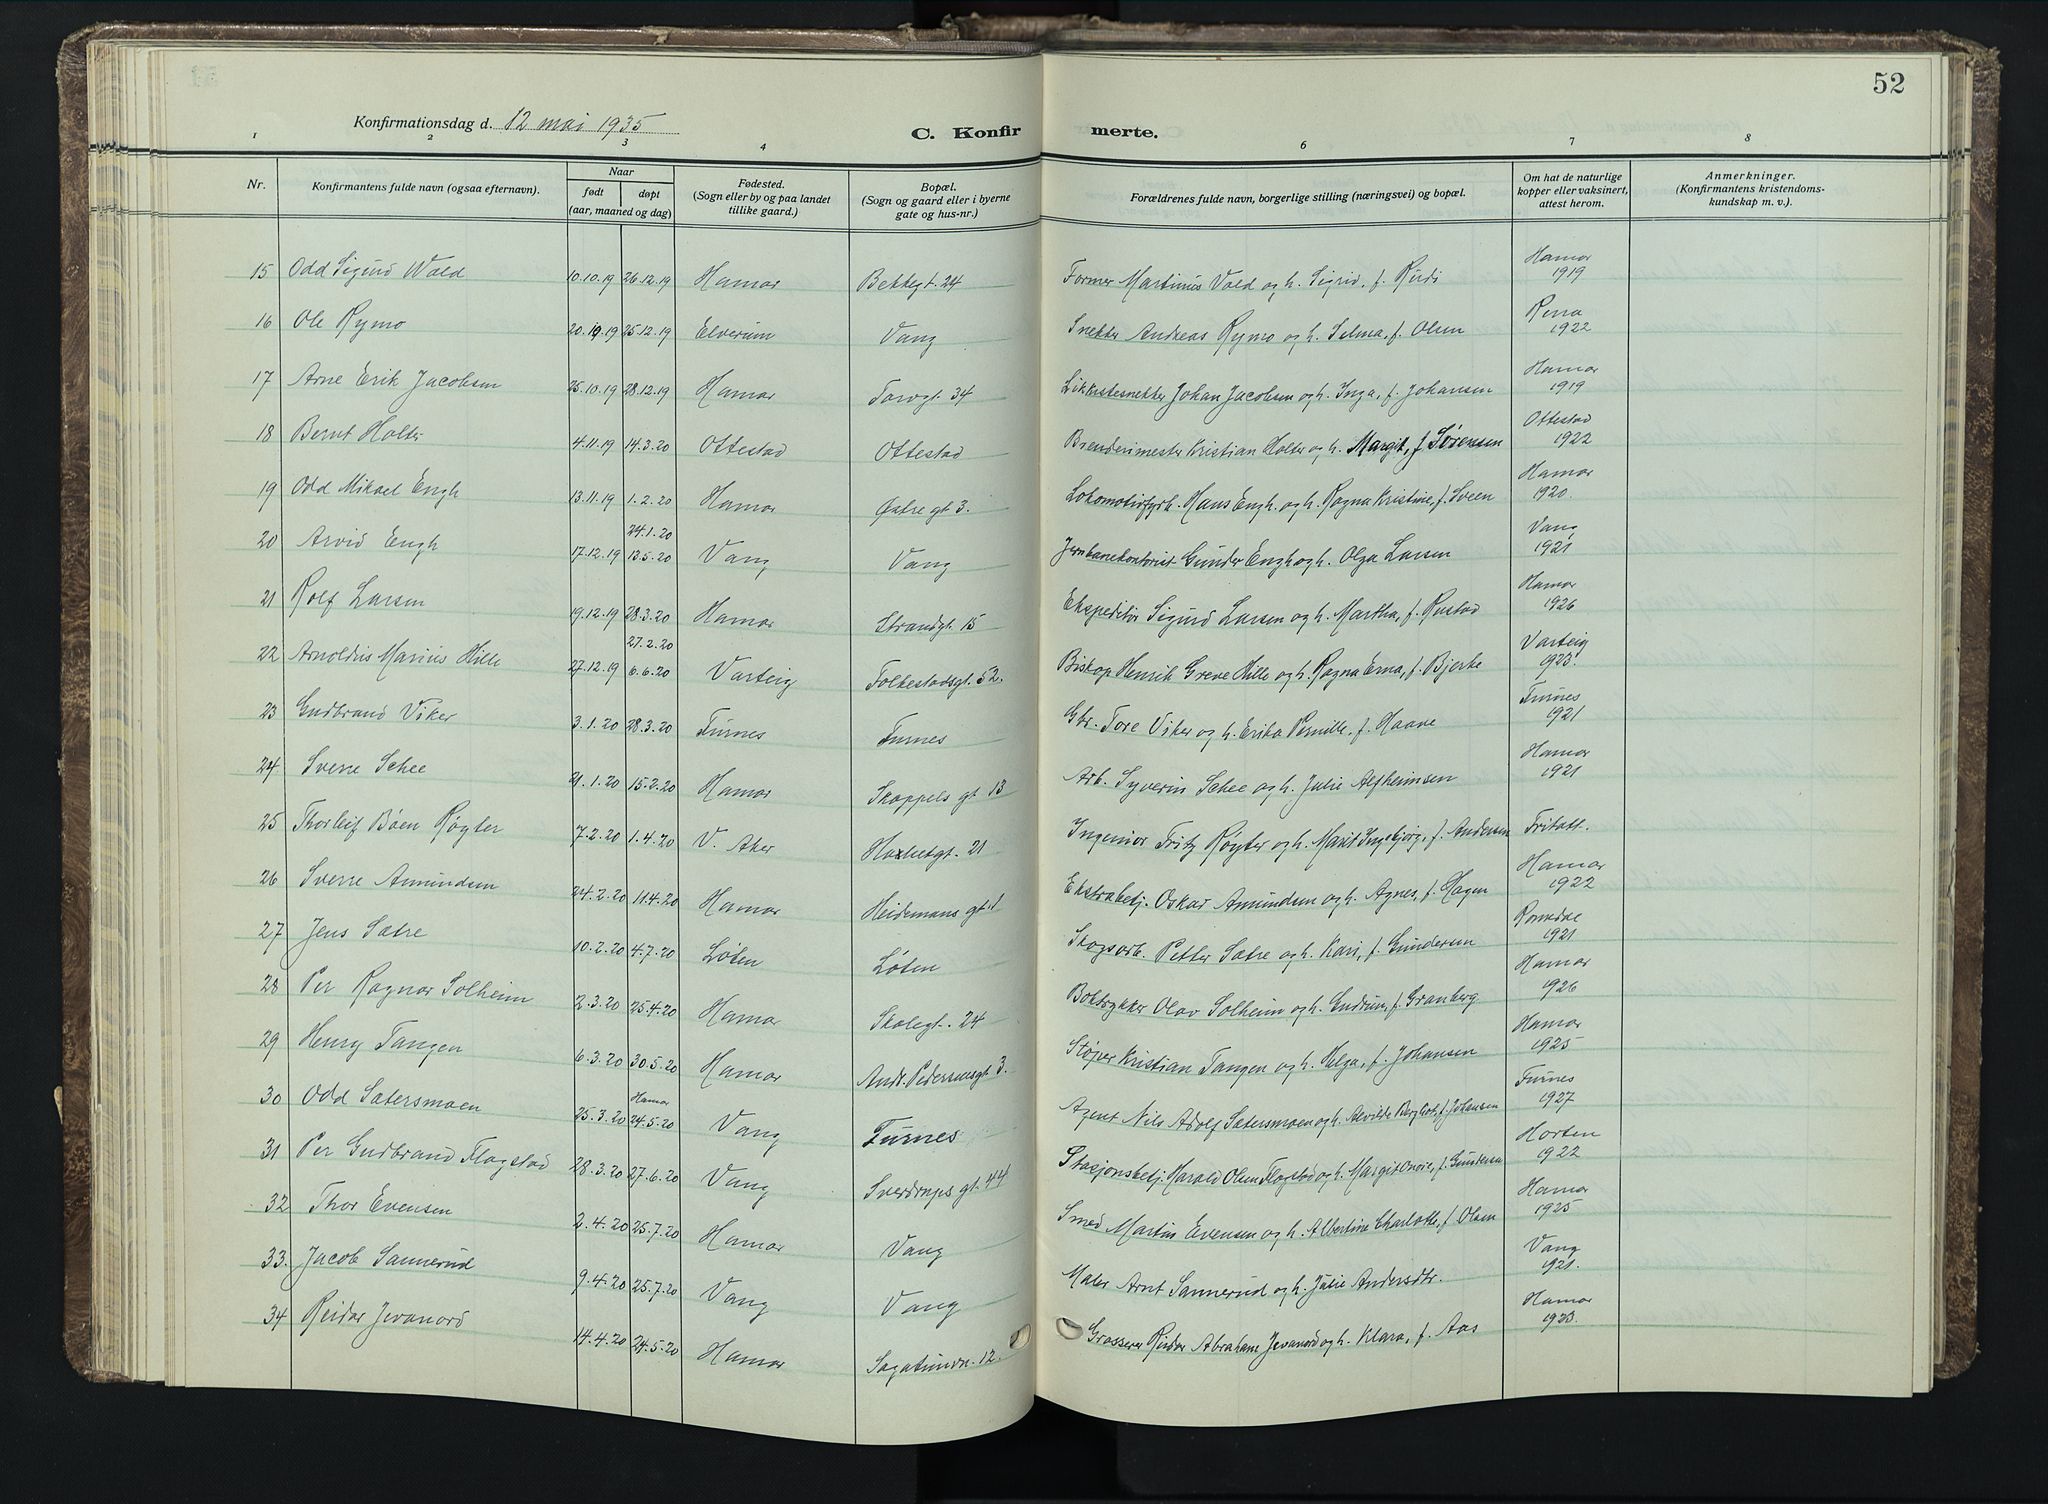 52
Konfirmationsdag d. 12 mai 1935
C. Konfirmerte.
1 2 3 4 6 7 8
Nr. | Konfirmantens fulde navn (ogsaa efternavn). | Naar født døpt (aar, maaned og dag) | Fødested. (Sogn eller by og paa landet tillike gaard.) | Bopæl. (Sogn og gaard eller i byerne gate og hus-nr.) | Forældrenes fulde navn, borgerlige stilling (næringsvei) og bopæl. | Om hat de naturlige kopper eller vaksinert, attest herom. | Anmerkninger. (Konfirmantens kristendomskundskap m. v.).
15 Odd Sigurd Wold 10.10.19 26.12.19 Hamar Bekkegt. 24 Former Martinius Vold og h. Sigrid, f. Rudi Hamar 1919
16 Ole Rymo 20.10.19 25.12.19 Elverum Vang Snekker Andreas Rymo og h. Selma, f. Olsen Rena 1922
17 Arne Erik Jacobsen 25.10.19 28.12.19 Hamar Torvgt. 34 Likkistesnekker Johan Jacobsen og h. Inga, f. Johansen Hamar 1919
18 Bernt Holter 4.11.19 14.3.20 Ottestad Ottestad Brenderimester Kristian Holter og h. Margit, f. Sørensen Ottestad 1922
19 Odd Mikael Engh 13.11.19 1.2.20 Hamar Østre gt. 3. Lokomotivfyrb. Hans Engh. og h. Ragna Kristine, f. Sveen Hamar 1920.
20 Arvid Engh 17.12.19 24.1.20 13.5.20 Vang Vang Jernbanekontorist Gunder Engh og h. Olga Larsen Vang 1921
21 Rolf Larsen 19.12.19 28.3.20 Hamar Strandgt. 15 Ekspeditør Sigurd Larsen og h. Martha, f. Rustad Hamar 1926
22 Arnoldus Marius Hille 27.12.19 27.2.20 6.6.20 Varteig Folkestadsgt. 52. Biskop Henrik Greve Hille og h. Ragna Erna, f. Bjerke Varteig 1923.
23 Gudbrand Viker 3.1.20 28.3.20 Furnes Furnes Gbr. Tore Viker og h. Erika Pernille, f. Haave Furnes 1921
24 Sverre Schee 21.1.20 15.2.20 Hamar Skappels gt 13 Arb. Syverin Schee og h. Julie Alfheimsen Hamar 1921
25 Thorleif Bøen Røgter 7.2.20 1.4.20 V. Aker Holsetgt. 21 Ingeniør Fritz Røgter og h. Marit Ingebjørg, f. Andersen Fritatt.
26 Sverre Amundsen 24.2.20 11.4.20 Hamar Heidemans gt. 1 Ekstrabetj. Oskar Amundsen og h. Agnes, f. Hagen Hamar 1922
27 Jens Sætre 10.2.20 4.7.20 Løten Løten Skogsarb. Petter Sætre og h. Kari, f. Gundersen Romedal 1921
28 Per Ragnar Solheim 2.3.20 25.4.20 Hamar Skolegt. 24 Boktrykker Olav Solheim og h. Gudrun, f. Granberg Hamar 1926
29 Henry Tangen 6.3.20 30.5.20 Hamar Andr. Pedersensgt. 3. Støper Kristian Tangen og h. Helga, f. Johansen Hamar 1925
30 Odd Sætersmoen 25.3.20 Hamar 24.5.20 Vang Furnes Agent Nils Adolf Sætersmoen og h. Alvilde Bergliot, f. Johansen Furnes 1927
31 Per Gudbrand Flagstad 28.3.20 27.6.20 Vang Sverdrups gt. 44 Stasjonsbetj. Harald Olsen Flagstad og h. Margit f. Gundersen Horten 1922
32 Thor Evensen 2.4.20 25.7.20 Hamar Vang Smed Martin Evensen og h. Albertine Charlotte, f. Olsen Hamar 1925
33. Jacob Sannerud 9.4.20 25.7.20 Vang Vang Maler Arnt Sannerud og h. Julie Andersdtr. Vang 1921.
34 Reidar Jevanord 14.4.20 24.5.20 Hamar Sagatunvn. 12. Grosserer Reidar Abraham Jevanord og h. Klara, f. Aas Hamar 1923.